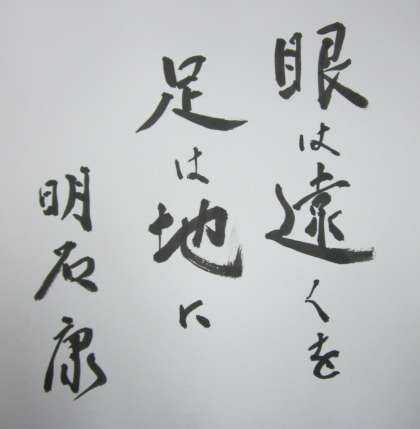 眼は遠くを
足は地に
明石康